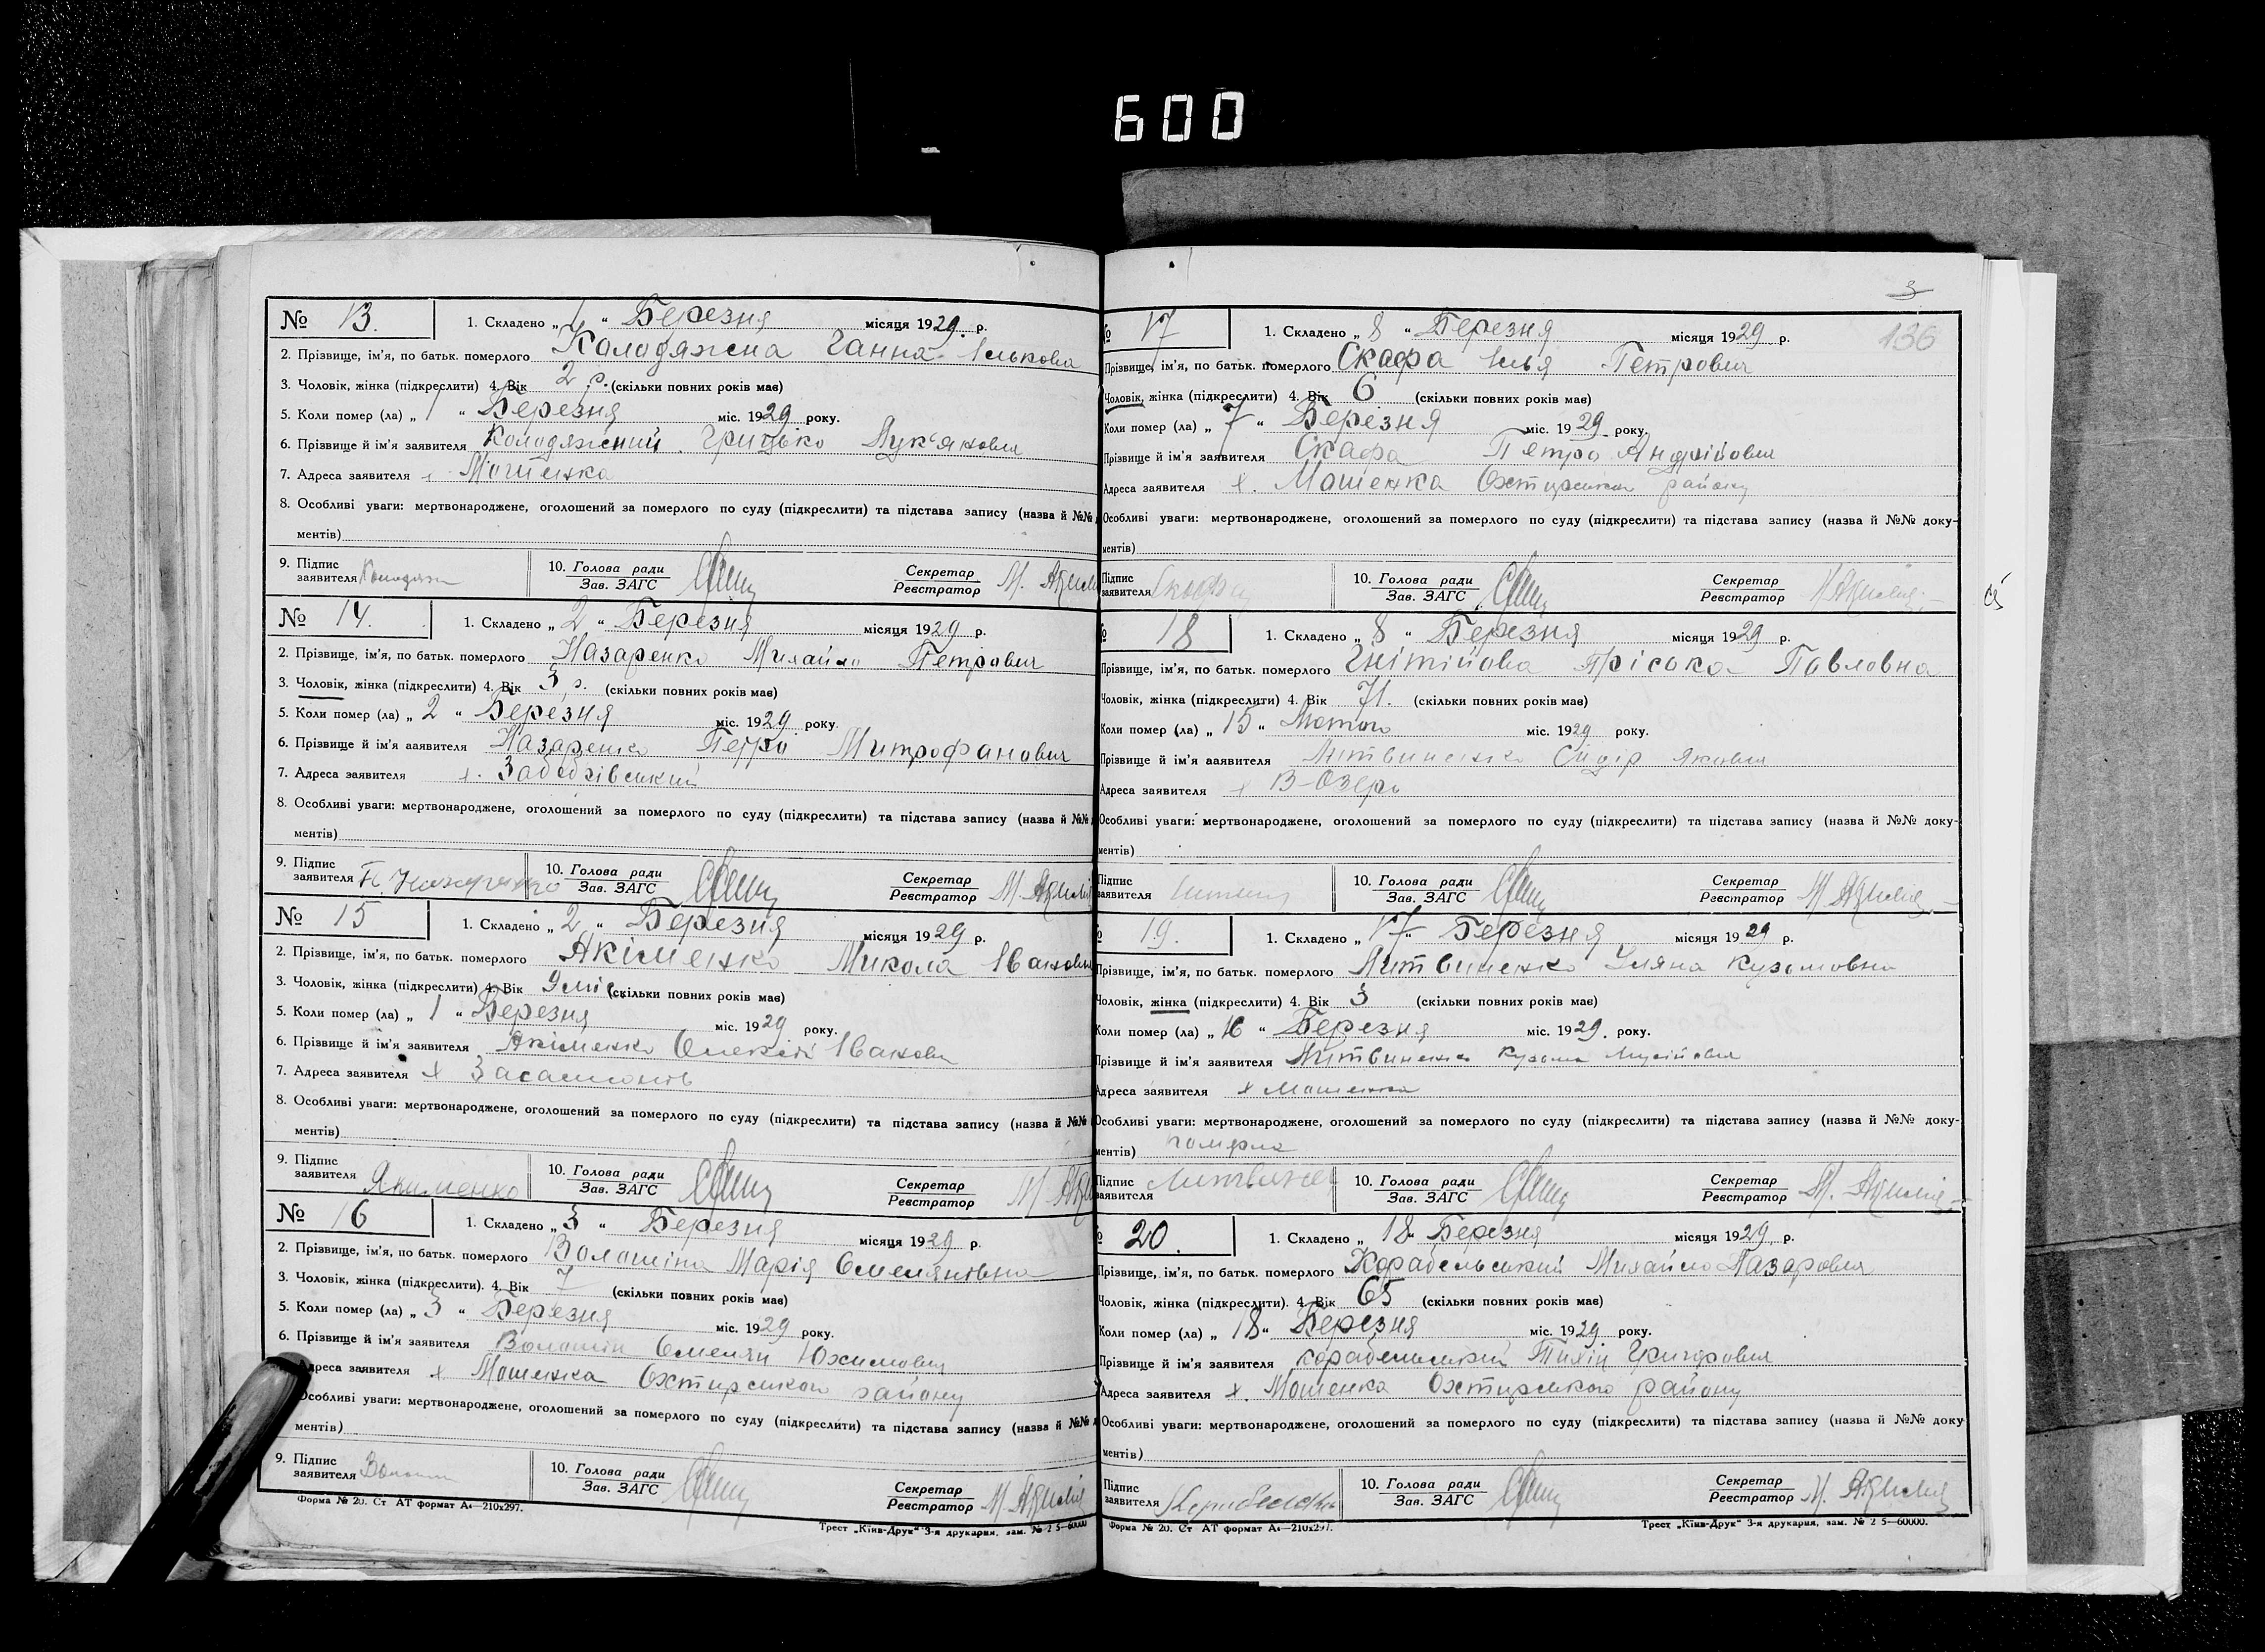 600
№ 13.
1. Складено „ 1 “ Березня місяця 1929 р.
2. Прізвище, ім'я, по батьк. померлого Колодяжна Ганна Ількова
3. Чоловік, жінка (підкреслити) 4. Вік 2 р. (скільки повних років має)
5. Коли помер (ла) „ 1 “ Березня міс. 1929 року.
6. Прізвище й ім'я заявителя Колодяжний Грицько Лук'янович
7. Адреса заявителя х Мошенка
8. Особливі уваги: мертвонароджене, оголошений за померлого по суду (підкреслити) та підстава запису (назва й №№
ментів)
9. Підпис заявителя Колодяж
10. Голова ради
Зав. ЗАГС
Секретар
Реєстратор М.
№ 14.
1. Складено „ 2 “ Березня місяця 1929 р.
2. Прізвище, ім'я, по батьк. померлого Назаренко Михайло Петрович
3. Чоловік, жінка (підкреслити) 4. Вік 3 р. (скільки повних років має)
5. Коли помер (ла) „ 2 “ Березня міс. 1929 року.
6. Прізвище й ім'я заявителя Назаренко Петро Митрофанович
7. Адреса заявителя х.
8. Особливі уваги: мертвонароджене, оголошений за померлого по суду (підкреслити) та підстава запису (назва й №№
ментів)
9. Підпис заявителя П. Назаренко
10. Голова ради
Зав. ЗАГС
Секретар
Реєстратор М.
№ 15
1. Складено „ 2 “ Березня місяця 1929 р.
2. Прізвище, ім'я, по батьк. померлого Акіменко Микола Іванович
3. Чоловік, жінка (підкреслити) 4. Вік 9 міс (скільки повних років має)
5. Коли помер (ла) „ 1 “ Березня міс. 1929 року.
6. Прізвище й ім'я заявителя Акіменко Олексій Іванович
7. Адреса заявителя х
8. Особливі уваги: мертвонароджене, оголошений за померлого по суду (підкреслити) та підстава запису (назва й №№
ментів)
9. Підпис заявителя Якименко
10. Голова ради
Зав. ЗАГС
Секретар
Реєстратор М.
№ 16
1. Складено „ 3 “ Березня місяця 1929 р.
2. Прізвище, ім'я, по батьк. померлого Волошіна Марія Омелянівна
3. Чоловік, жінка (підкреслити). 4. Вік 7 (скільки повних років має)
5. Коли помер (ла) „ 3 “ Березня міс. 1929 року.
6. Прізвище й ім'я заявителя Волошін Омелян Юхимович
Адреса заявителя х Мошенка Охтирського району
Особливі уваги: мертвонароджене, оголошений за померлого по суду (підкреслити) та підстава запису (назва й №№
ментів)
9. Підпис заявителя Волошин
10. Голова ради
Зав. ЗАГС
Секретар
Реєстратор М.
Форма № 20. Ст АТ формат А4—210х297.
Трест „Київ-Друк“ 3-я друкарня, зам. № 2 5—60000
3
136
№ 17
1. Складено „ 8 “ Березня місяця 1929 р.
Прізвище, ім'я, по батьк. померлого Скафа Ілья Петрович
Чоловік, жінка (підкреслити) 4. Вік 6 (скільки повних років має)
Коли помер (ла) „ 7 “ Березня міс. 1929 року.
Прізвище й ім'я заявителя Скафа Петро Андрійович
Адреса заявителя х. Мошенка Охтирського району
Особливі уваги: мертвонароджене, оголошений за померлого по суду (підкреслити) та підстава запису (назва й №№ доку-
ментів)
Підпис заявителя Скафа
10. Голова ради
Зав. ЗАГС
Секретар
Реєстратор
18
1. Складено „ 8 “ Березня місяця 1929 р.
Прізвище, ім'я, по батьк. померлого Пріська Павловна
Чоловік, жінка (підкреслити) 4. Вік 71. (скільки повних років має)
Коли помер (ла) „ 15 “ Лютого міс. 1929 року.
Прізвище й ім'я заявителя Литвиненко Сидір Якович
Адреса заявителя х В-Озеро
Особливі уваги: мертвонароджене, оголошений за померлого по суду (підкреслити) та підстава запису (назва й №№ доку-
ментів)
Підпис заявителя
10. Голова ради
Зав. ЗАГС
Секретар
Реєстратор М.
19.
1. Складено „ 17 “ Березня місяця 1929 р.
Прізвище, ім'я, по батьк. померлого Литвиненко Уляна Кузьмовна
Чоловік, жінка (підкреслити) 4. Вік 3 (скільки повних років має)
Коли помер (ла) „ 16 “ Березня міс. 1929. року.
Прізвище й ім'я заявителя Литвиненко Кузьма Мусійович
Адреса заявителя х Мошенка
Особливі уваги: мертвонароджене, оголошений за померлого по суду (підкреслити) та підстава запису (назва й №№ доку-
ментів) померла
Підпис заявителя Литвинен
10. Голова ради
Зав. ЗАГС
Секретар
Реєстратор М.
20.
1. Складено „ 18 “ Березня місяця 1929 р.
Прізвище, ім'я, по батьк. померлого Корабельський Михайло Лазарович
Чоловік, жінка (підкреслити). 4. Вік 65 (скільки повних років має)
Коли помер (ла) „ 18 “ Березня міс. 1929 року.
Прізвище й ім'я заявителя Корабельський Тихін Григорович
Адреса заявителя х. Мошенка Охтирського району
Особливі уваги: мертвонароджене, оголошений за померлого по суду (підкреслити) та підстава запису (назва й №№ доку
ментів)
Підпис заявителя
10. Голова ради
Зав. ЗАГС
Секретар
Реєстратор М.
Форма № 20. Ст АТ формат А4—210х297.
Трест „Київ-Друк“ 3-я друкарня, зам. № 2 5—60000.